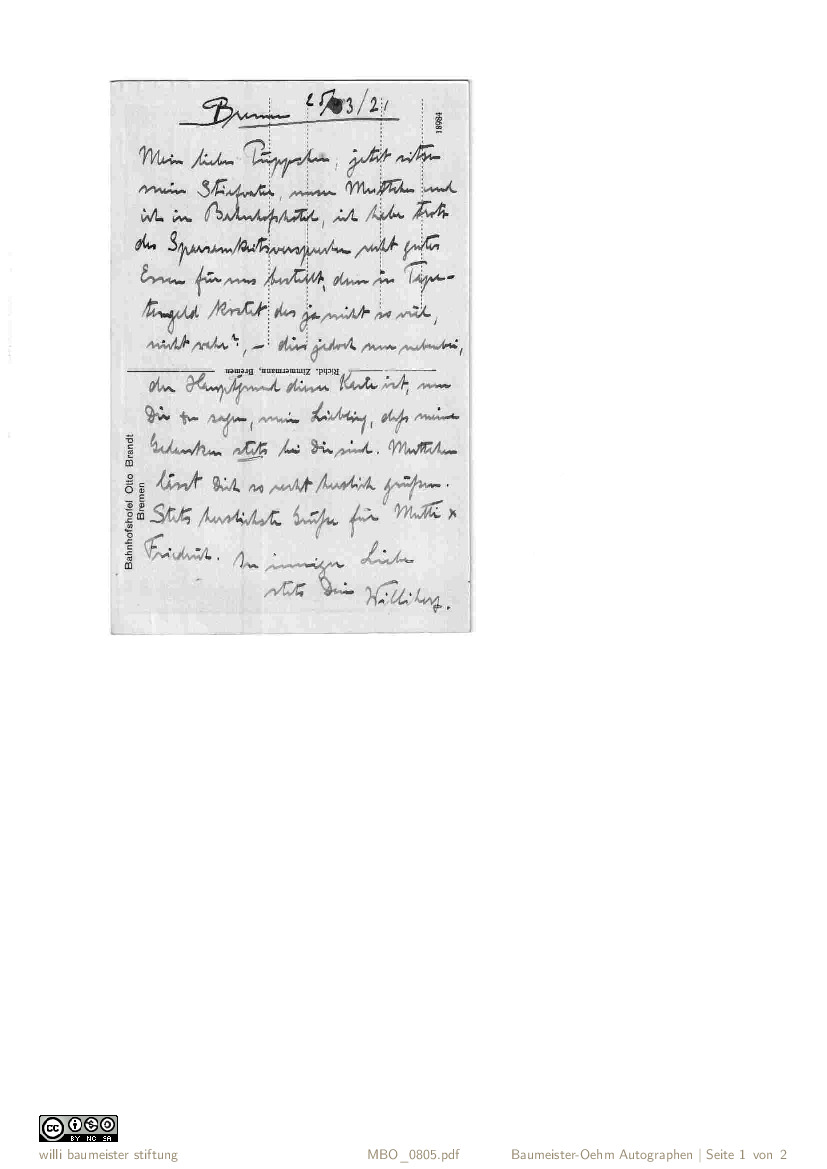 Bremen 25/3/21
18984
Mein liebes Püppchen, jetzt sitzen
mein Stiefvater, unser Muttchen und
ich im Bahnhofshotel, ich habe trotz
des Sparsamkeitsversprechen recht gutes
Essen für uns bestellt, denn in Tape-
tengeld kostet des ja nicht so viel,
nicht wahr?, – dies jedoch nur nebenbei,
Richd. Zimmermann, Bremen
der Hauptgrund dieser Karte ist, um
Dir zu sagen, mein Liebling, daß meine
Gedanken stets bei Dir sind. Muttchen
lässt Dich so recht herzlich grüßen.
Stets herzlichste Grüße für Mutti x
Friedrich. In inniger Liebe
stets Dein Williherz.
Bahnhofshotel Otto Brandt
Bremen
CC BY NC SA
willi baumeister stiftung
MBO_0805.pdf
Baumeister-Oehm Autographen | Seite 1 von 2